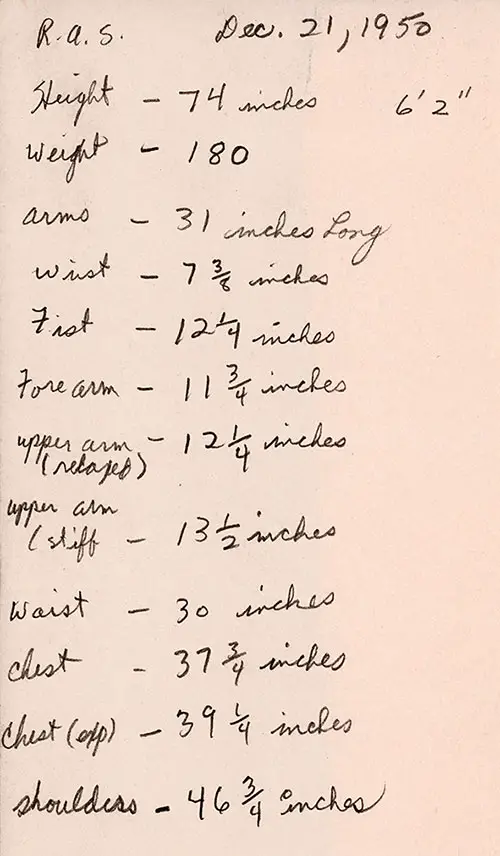 R.A.S. Dec. 21, 1950
Height - 74 inches 6'2"
Weight - 180
arms - 31 inches Long
Wrist - 7 3/8 inches
Fist - 12 1/4 inches
Forearm - 11 3/4 inches
upper arm - 12 1/4 inches
(relaxed)
upper arm
(stiff - 13 1/2 inches
Waist - 30 inches
Chest - 37 3/4 inches
Chest (exp) - 39 1/4 inches
shoulders - 46 3/4 inches